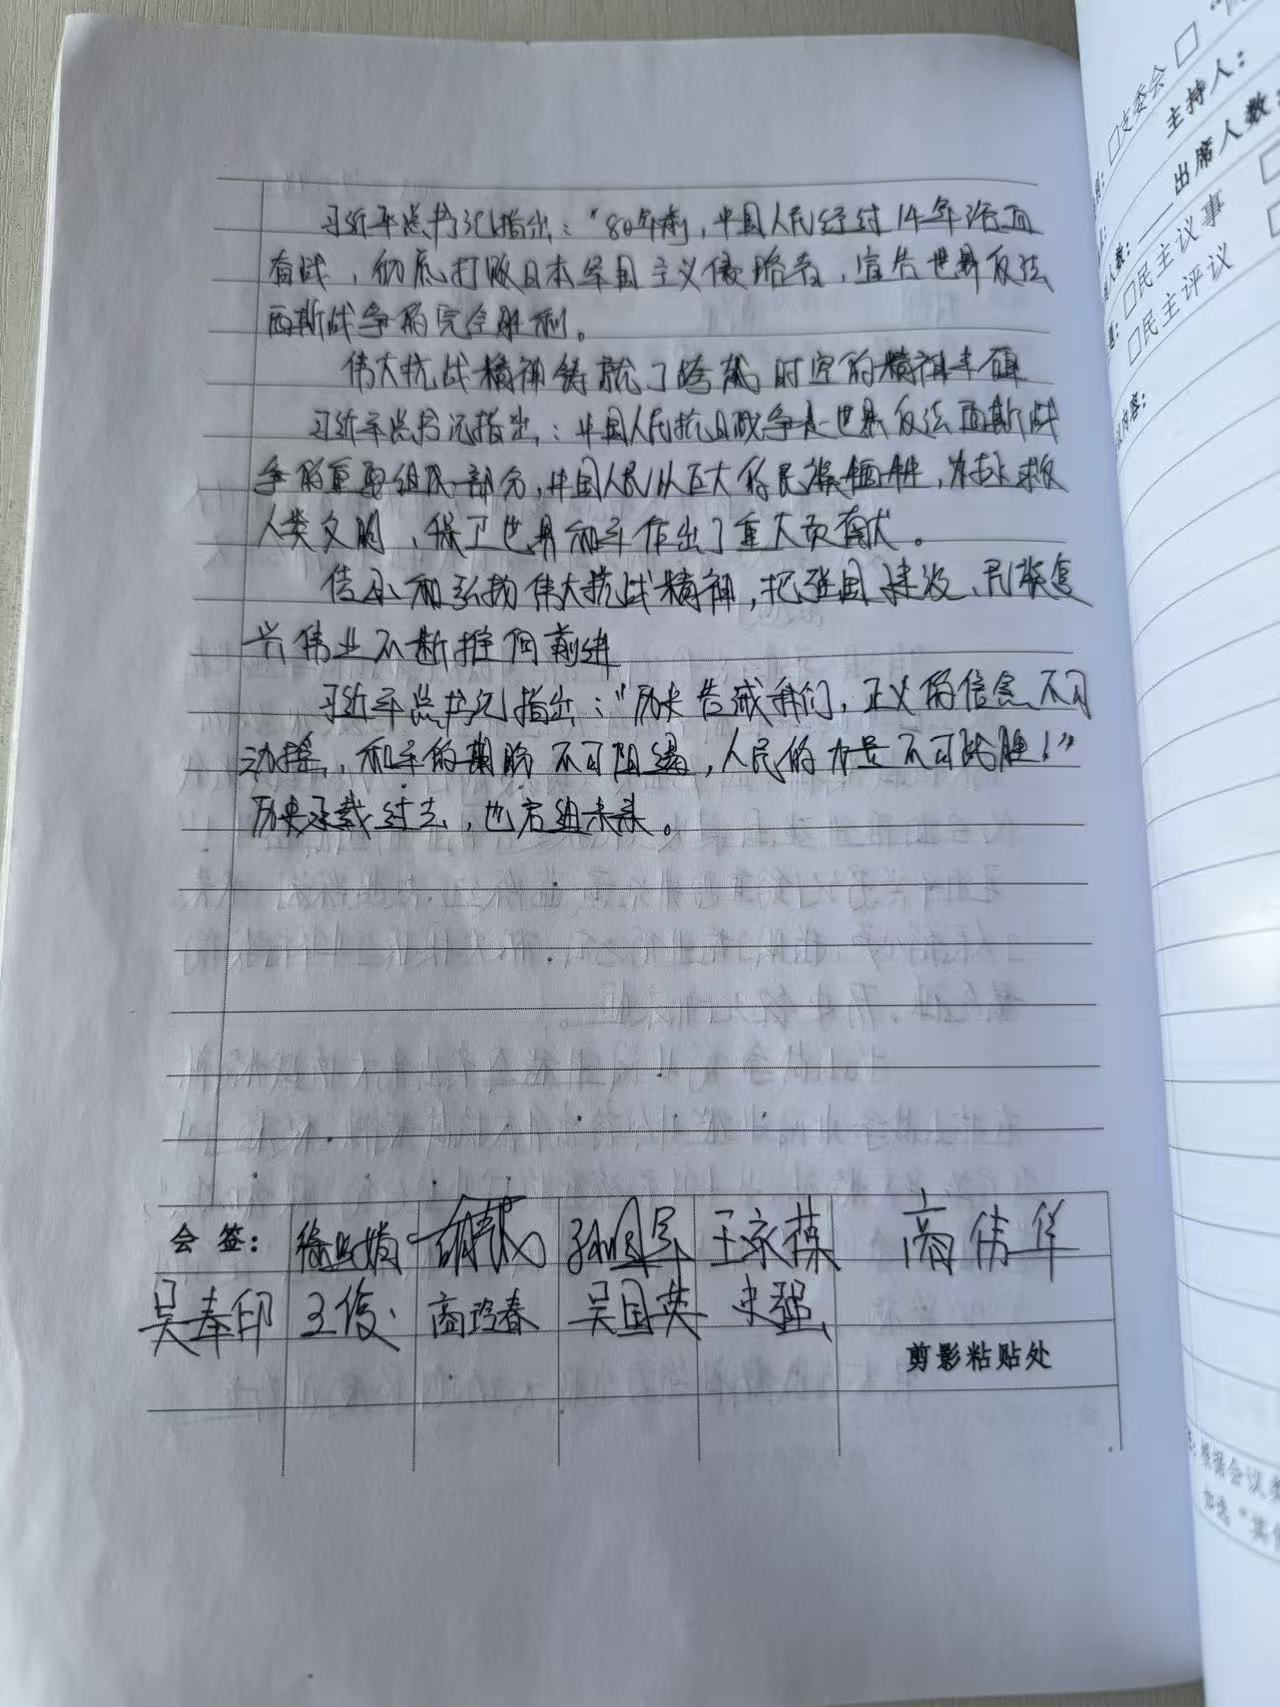 习近平总书记指出："80年前，中国人民经过14年浴血
奋战，彻底打败日本军国主义侵略者，宣告世界反法
西斯战争的完全胜利。
伟大抗战精神铸就了跨越时空的精神丰碑
习近平总书记指出：中国人民抗日战争是世界反法西斯战
争的重要组成部分，中国人民以巨大的民族牺牲，为拯救
人类文明、保卫世界和平作出了重大贡献。
传承和弘扬伟大抗战精神，把强国建设、民族复
兴伟业不断推向前进
习近平总书记指出："历史告诫我们，正义的信念不可
动摇，和平的期盼不可阻遏，人民的力量不可战胜！"
历史承载过去，也启迪未来。
会签：
王永栋 高伟华
吴奉印 王俊 高玲春 吴国英 史强
剪影粘贴处
□支委会 □
主持人：
出席人数：
□民主议事
□民主评议
根据会议类